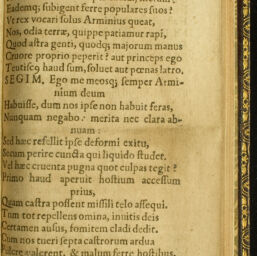 Eademq; subigent ferre populares suos?
Vt rex vocari solus Arminius queat,
Nos, odia terræ, quippe patiamur rapi,
Quod astra genti, quodq; majorum manus
Cruore proprio peperit? aut princeps ego
Teutiscq haud sum, soluet aut pœnas latro.
SEGIM. Ego me meosq; semper Armi-
nium deum
Habuisse, dum nos ipse non habuit feras,
Nunquam negabo: merita nec clara ab-
nuam:
Sed hæc refellit ipse deformi exitu,
Secum perire cuncta qui liquido studet.
Vel hæc cruenta pugna quot culpas tegit?
Primo haud aperuit hostium accessum
prius,
Quam castra possent missili telo assequi.
Tum tot repellens omina, inuitis deis
Certamen ausus, fomitem cladi dedit.
Cum nos tueri septa castrorum ardua
valerent, & malum ferre hostibus,